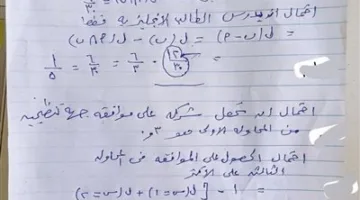 احتمال ان يدرس الطالب الانجليزية فقط
= ل(ب - م) = ل(ب) - ل(م∩ب)
١٣/٣٠ - ٦/٣٠ = ٦/٣٠ = ١/٥
احتمال ان تحصل شركة على موافقة جهة تنظيمية
من المحاولة الاولى هو ٣و.
احتمال الحصول على الموافقة في المحاولة
الثالثة على الأكثر
= ١ - [ل(س=١) + ل(س=٢)